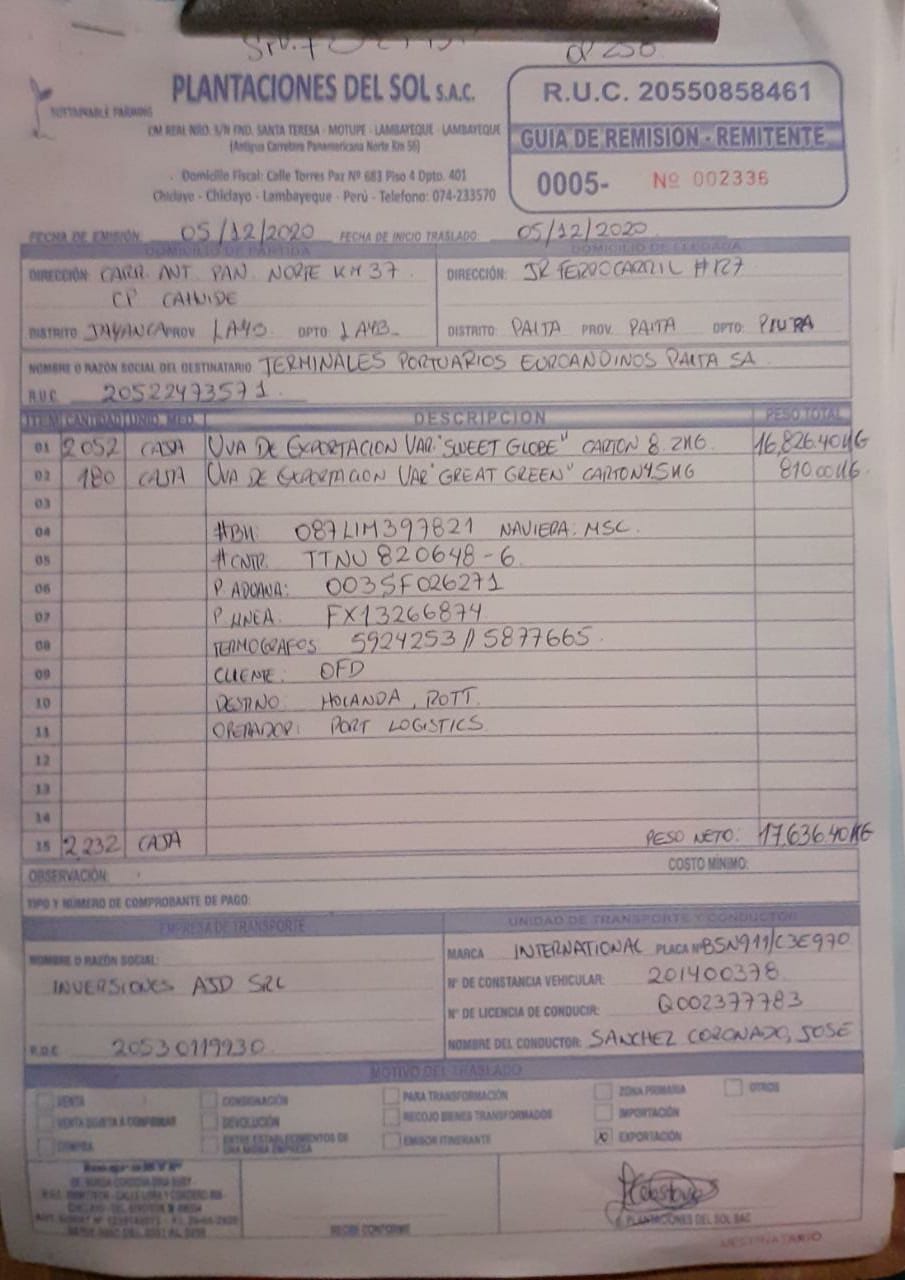 SUSTAINABLE FARMING
PLANTACIONES DEL SOL S.A.C.
CM REAL NRO. S/N FND. SANTA TERESA - MOTUPE - LAMBAYEQUE - LAMBAYEQUE
(Antigua Carretera Panamericana Norte Km 56)
Domicilio Fiscal: Calle Torres Paz Nº 681 Piso 4 Dpto. 401
Chiclayo - Chiclayo - Lambayeque - Perú - Telefono: 074-233570
R.U.C. 20550858461
GUIA DE REMISION - REMITENTE
0005- Nº 002336
FECHA DE EMISIÓN: 05/12/2020 FECHA DE INICIO TRASLADO: 05/12/2020
DOMICILIO DE PARTIDA DOMICILIO DE LLEGADA
DIRECCIÓN: CARR. ANT. PAN. NORTE KM 37 DIRECCIÓN: JR FERROCARRIL #127
CP CAHUIDE
DISTRITO JAYANCA PROV. LAYB. DPTO: LAYB DISTRITO: PAITA PROV. PAITA DPTO: PIURA
NOMBRE O RAZÓN SOCIAL DEL DESTINATARIO TERMINALES PORTUARIOS EUROANDINOS PAITA SA
R.U.C. 20522473571
ITEM CANTIDAD UNID. MED. DESCRIPCION PESO TOTAL
01 2052 CAJA UVA DE EXPORTACION VAR "SWEET GLOBE" CARTON 8.2KG 16,826.40KG
02 180 CAJA UVA DE EXPORTACION VAR "GREAT GREEN" CARTON 4.5KG 810.00KG
03
04 #BK: 087LIM397821 NAVIERA: MSC.
05 #CNTR: TTNU 820648-6
06 P. ADUANA: 003SF026271
07 P. LINEA: FX13266874
08 TERMOGRAFOS 5924253 // 5877665
09 CLIENTE: OFD
10 DESTINO: HOLANDA, ROTT.
11 OPERADOR: PORT LOGISTICS
12
13
14
15 2,232 CAJA PESO NETO: 17,636.40KG
OBSERVACIÓN: COSTO MÍNIMO:
TIPO Y NÚMERO DE COMPROBANTE DE PAGO:
EMPRESA DE TRANSPORTE UNIDAD DE TRANSPORTE Y CONDUCTOR
MARCA INTERNATIONAL PLACA Nº BSN911/C3E970
NOMBRE O RAZÓN SOCIAL:
INVERSIONES AJD SRL Nº DE CONSTANCIA VEHICULAR: 201400378
Nº DE LICENCIA DE CONDUCIR: Q002377783
R.U.C 20530119930 NOMBRE DEL CONDUCTOR: SANCHEZ CORONADO, JOSE
MOTIVO DEL TRASLADO
VENTA CONSIGNACIÓN PARA TRANSFORMACIÓN ZONA PRIMARIA OTROS
VENTA SUJETA A CONFIRMAR DEVOLUCIÓN RECOJO BIENES TRANSFORMADOS IMPORTACIÓN
COMPRA ENTRE ESTABLECIMIENTOS DE UNA MISMA EMPRESA EMISOR ITINERANTE X EXPORTACIÓN
RECIBI CONFORME
PLANTACIONES DEL SOL SAC
DESTINATARIO